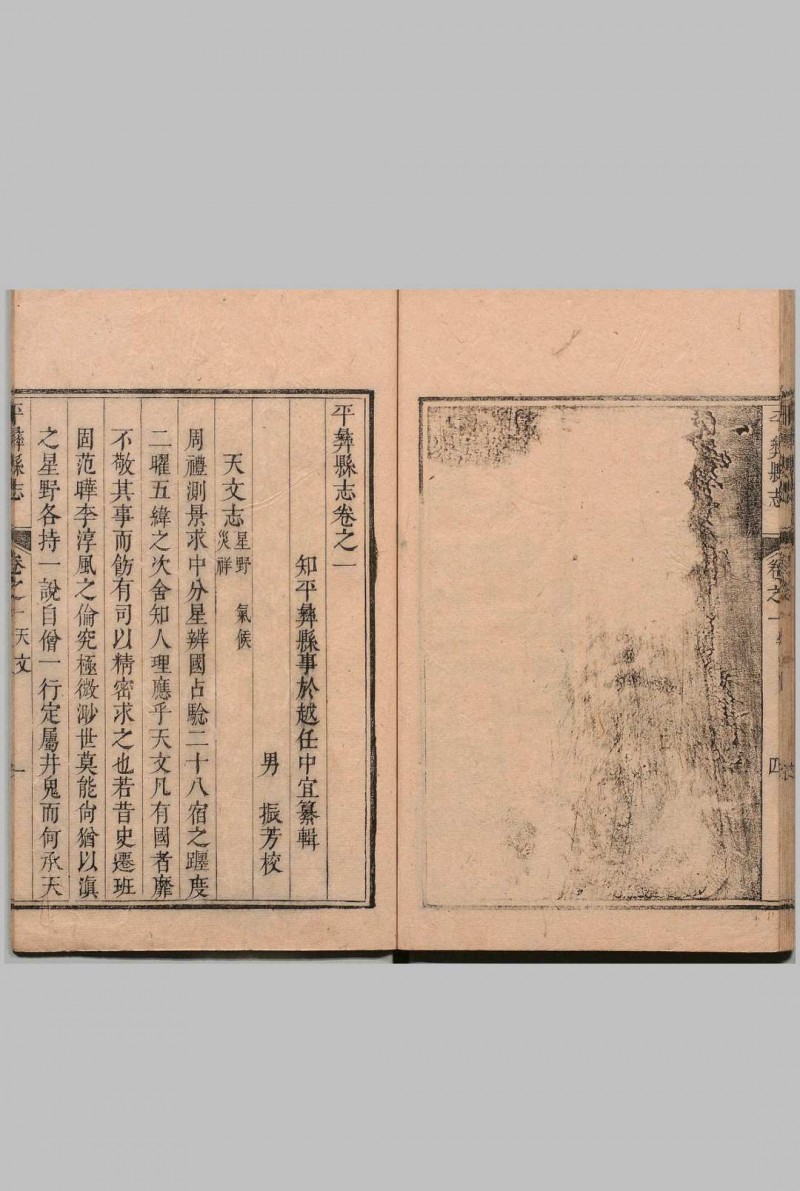 平彝縣志
卷之一
四
平彝縣志卷之一
知平彝縣事於越任中宜纂輯
男 振芳校
天文志 星野 氣候 災祥
周禮測景求中分星辨國占驗二十八宿之躔度
二曜五緯之次舍知人理應乎天文凡有國者靡
不敬其事而飭有司以精密求之也若昔史遷班
固范曄李淳風之倫究極微渺世莫能尙猶以滇
之星野各持一說自僧一行定屬井鬼而何承天
平彝縣志
卷之一 天文
一